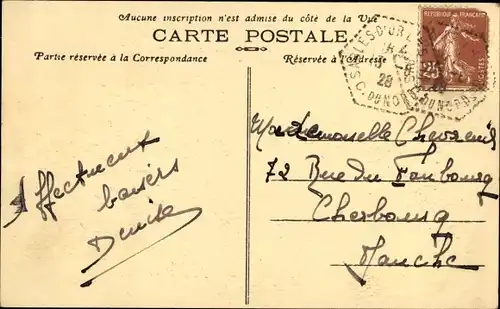 Aucune inscription n'est admise du côté de la Vue
CARTE POSTALE
Partie réservée à la Correspondance
Réservée à l'Adresse
RÉPUBLIQUE FRANÇAISE
25c
POSTES
28
DU NORD
Affectueux
baisers
Denise
Mademoiselle Chevreuil
72 Rue du Faubourg
Cherbourg
Manche